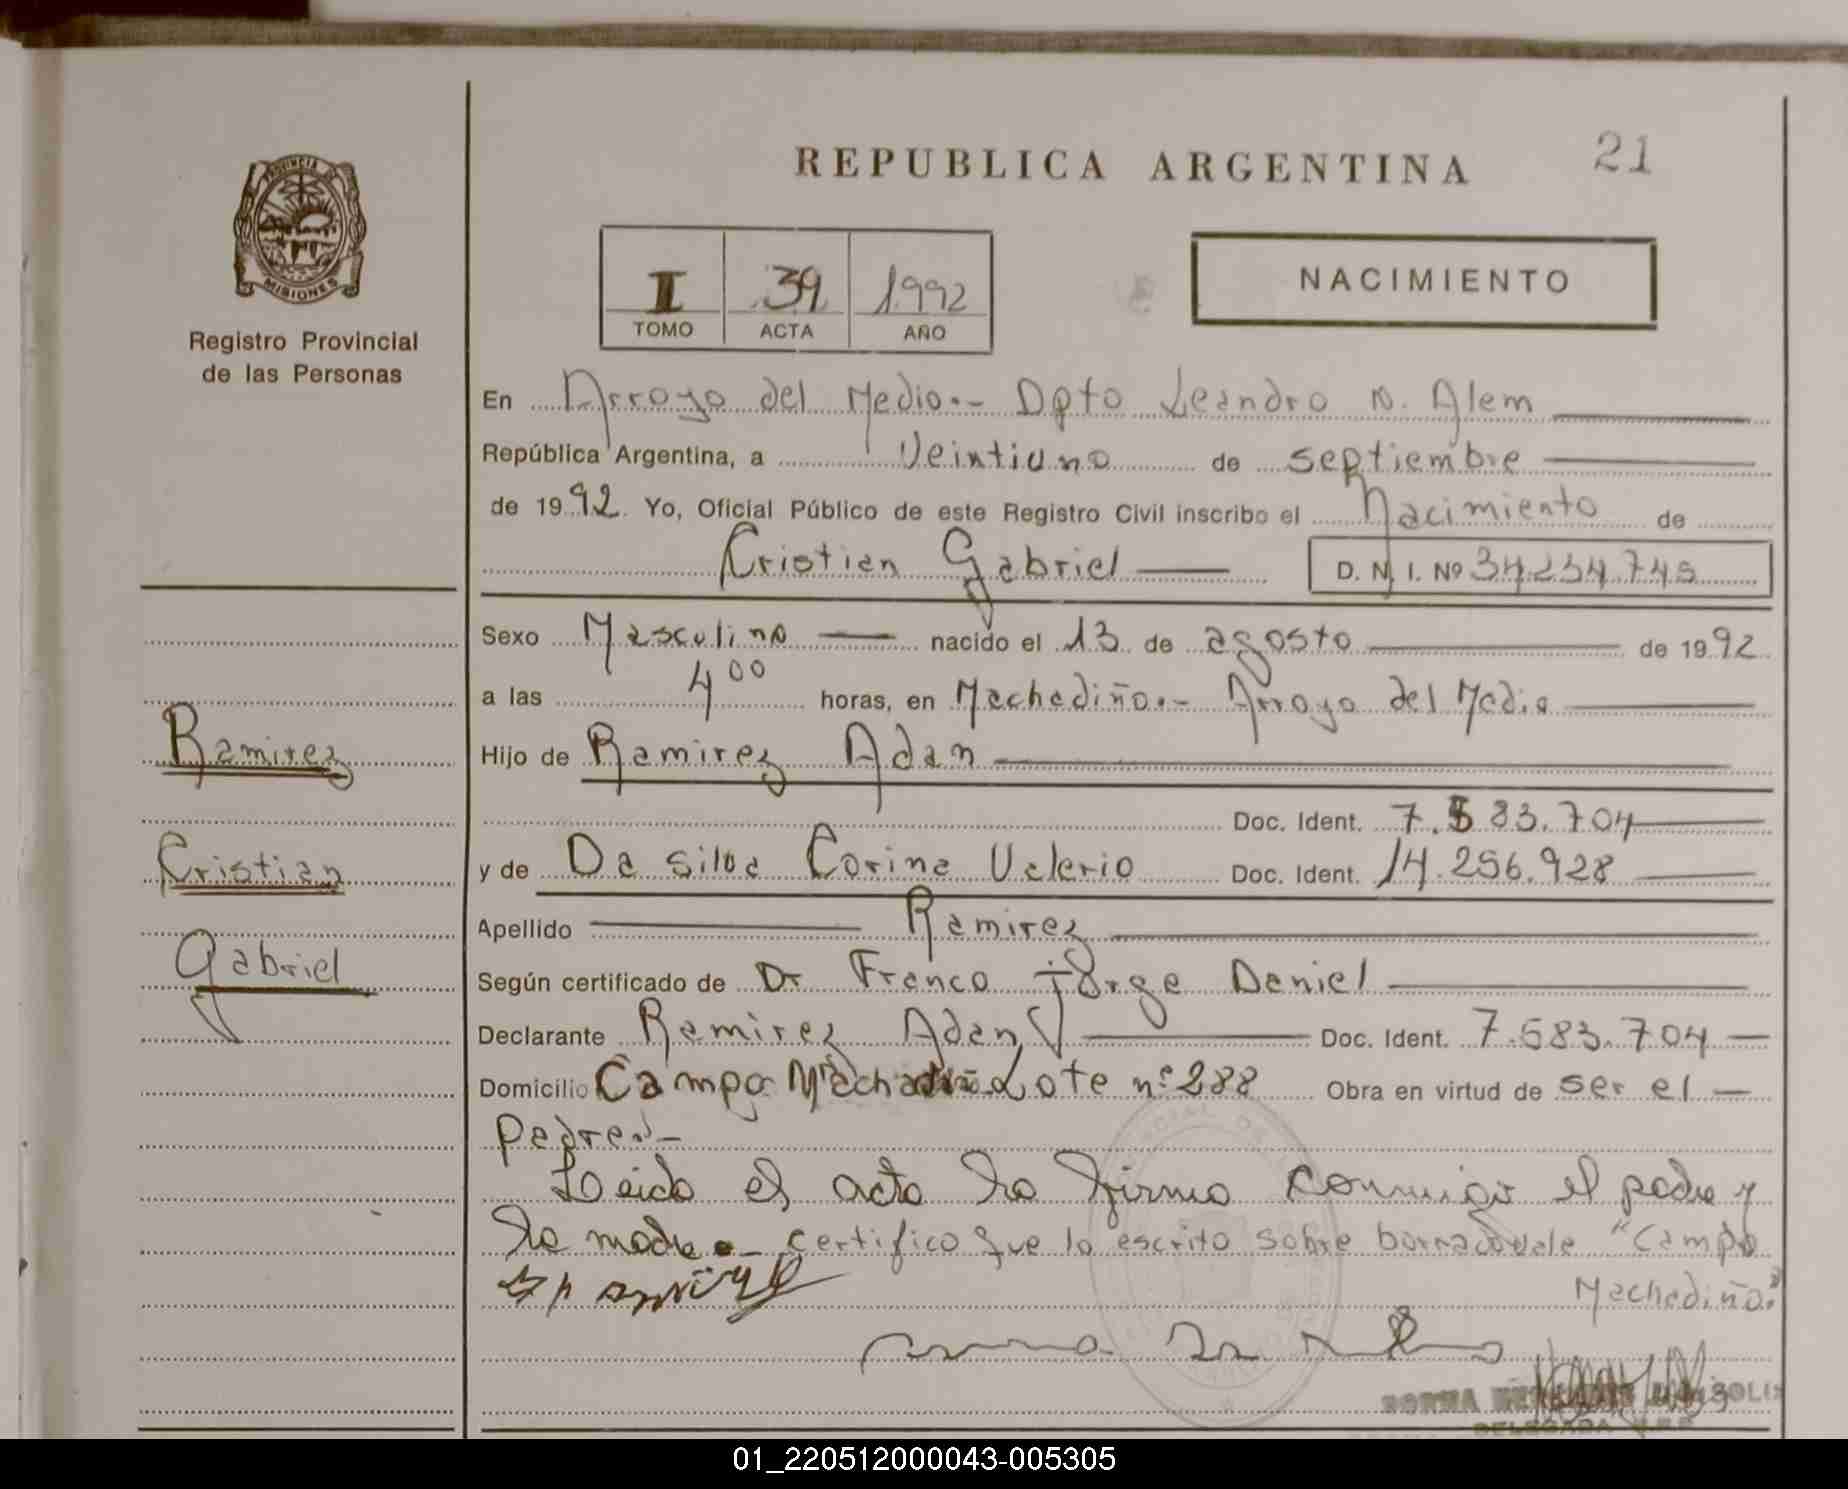 PROVINCIA DE
MISIONES
Registro Provincial
de las Personas
REPUBLICA ARGENTINA
21
I 39 1992
TOMO ACTA AÑO
NACIMIENTO
En Arroyo del Medio.- Dpto Leandro N. Alem
República Argentina, a Veintiuno de septiembre
de 1992 Yo, Oficial Público de este Registro Civil inscribo el Nacimiento de
Cristian Gabriel D. N. I. Nº 34.234.745
Sexo Masculino nacido el 13 de agosto de 1992
a las 4 00 horas, en Machadiño.- Arroyo del Medio
Ramirez
Hijo de Ramirez Adan
Doc. Ident. 7.583.704
Cristian
y de Da Silva Corina Valerio Doc. Ident. 14.256.928
Apellido Ramirez
Gabriel
Según certificado de Dr Franco Jorge Daniel
Declarante Ramirez Adan Doc. Ident. 7.583.704
Domicilio Campo Machadiño Lote nº 288 Obra en virtud de ser el
padre.-
Leida el acta la firma conmigo el padre y
la madre.- certifico que lo escrito sobre borrado vale "Campo
Machadiño."
NORMA
DELEGADA
01_220512000043-005305